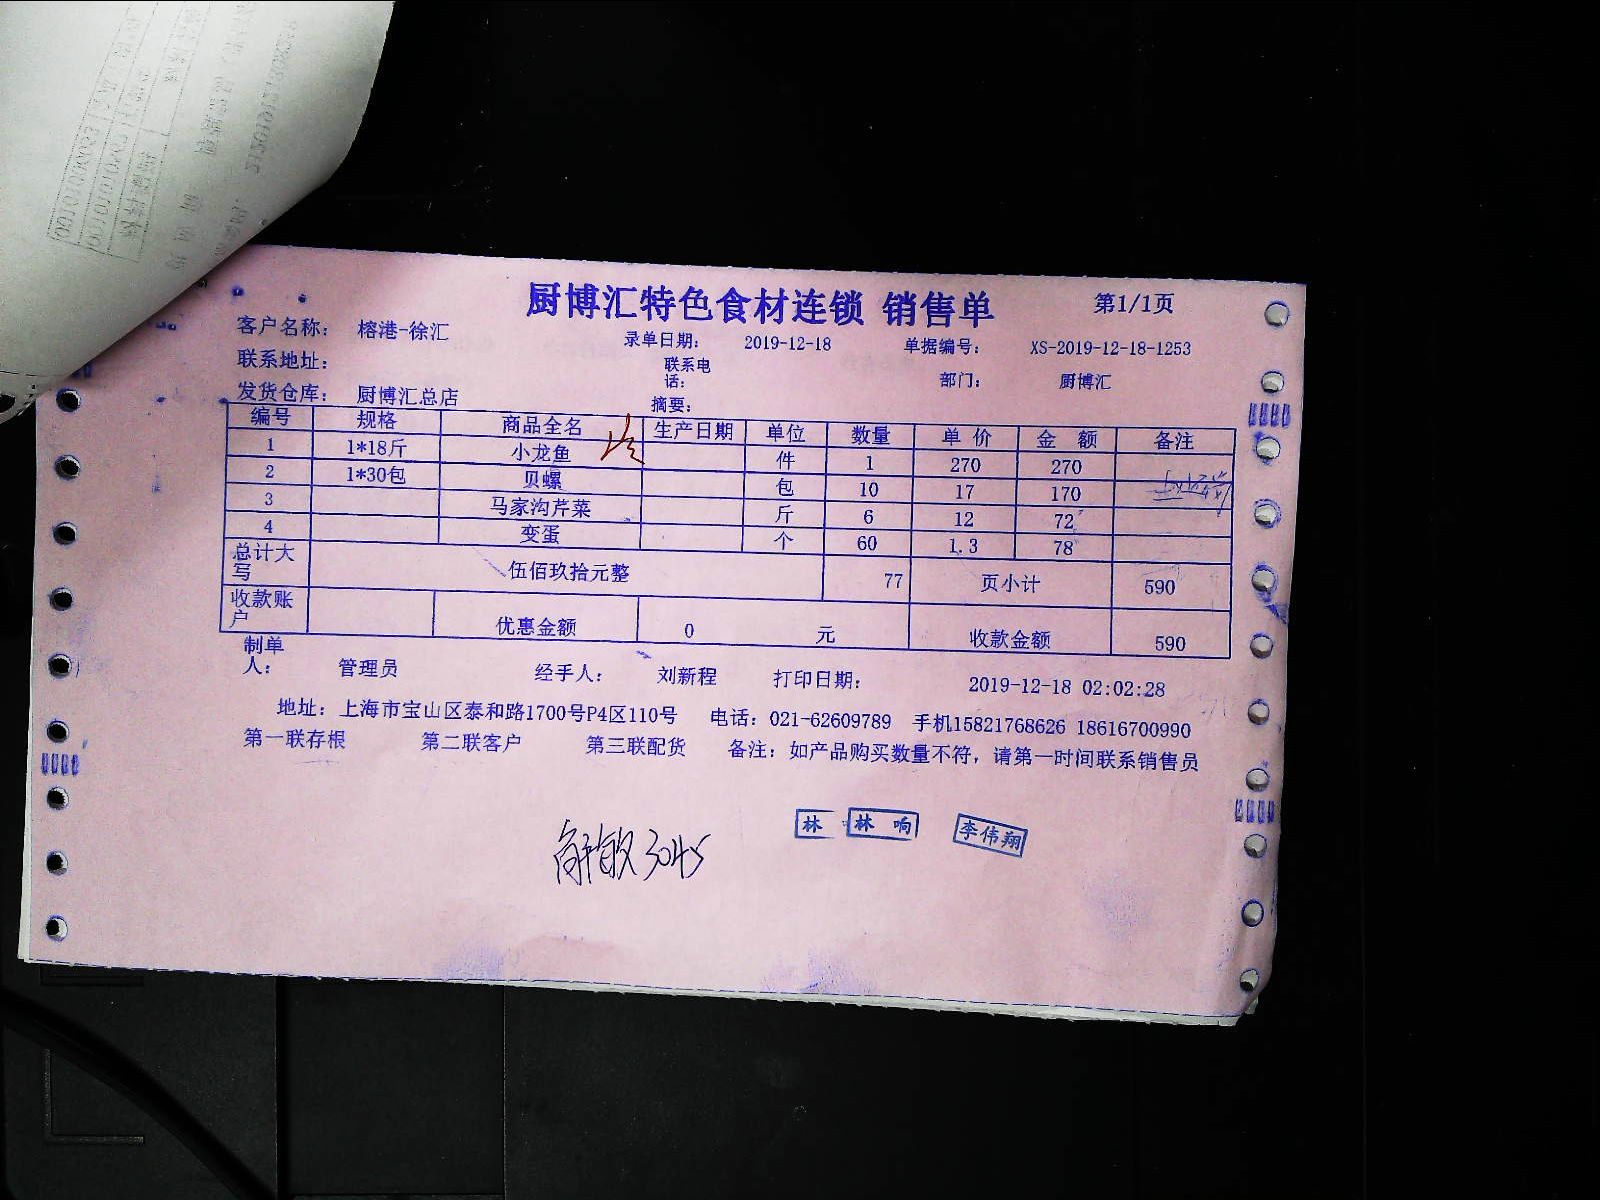 厨博汇特色食材连锁 销售单 第1/1页
客户名称： 榕港-徐汇 录单日期： 2019-12-18 单据编号： XS-2019-12-18-1253
联系地址： 联系电话： 部门： 厨博汇
发货仓库： 厨博汇总店 摘要：
编号 规格 商品全名 生产日期 单位 数量 单 价 金 额 备注
1 1*18斤 小龙鱼 件 1 270 270
2 1*30包 贝螺 包 10 17 170
3 马家沟芹菜 斤 6 12 72
4 变蛋 个 60 1.3 78
总计大写 伍佰玖拾元整 77 页小计 590
收款账户 优惠金额 0 元 收款金额 590
制单人： 管理员 经手人： 刘新程 打印日期： 2019-12-18 02:02:28
地址：上海市宝山区泰和路1700号P4区110号 电话：021-62609789 手机15821768626 18616700990
第一联存根 第二联客户 第三联配货 备注：如产品购买数量不符，请第一时间联系销售员
林 林 响 李伟翔